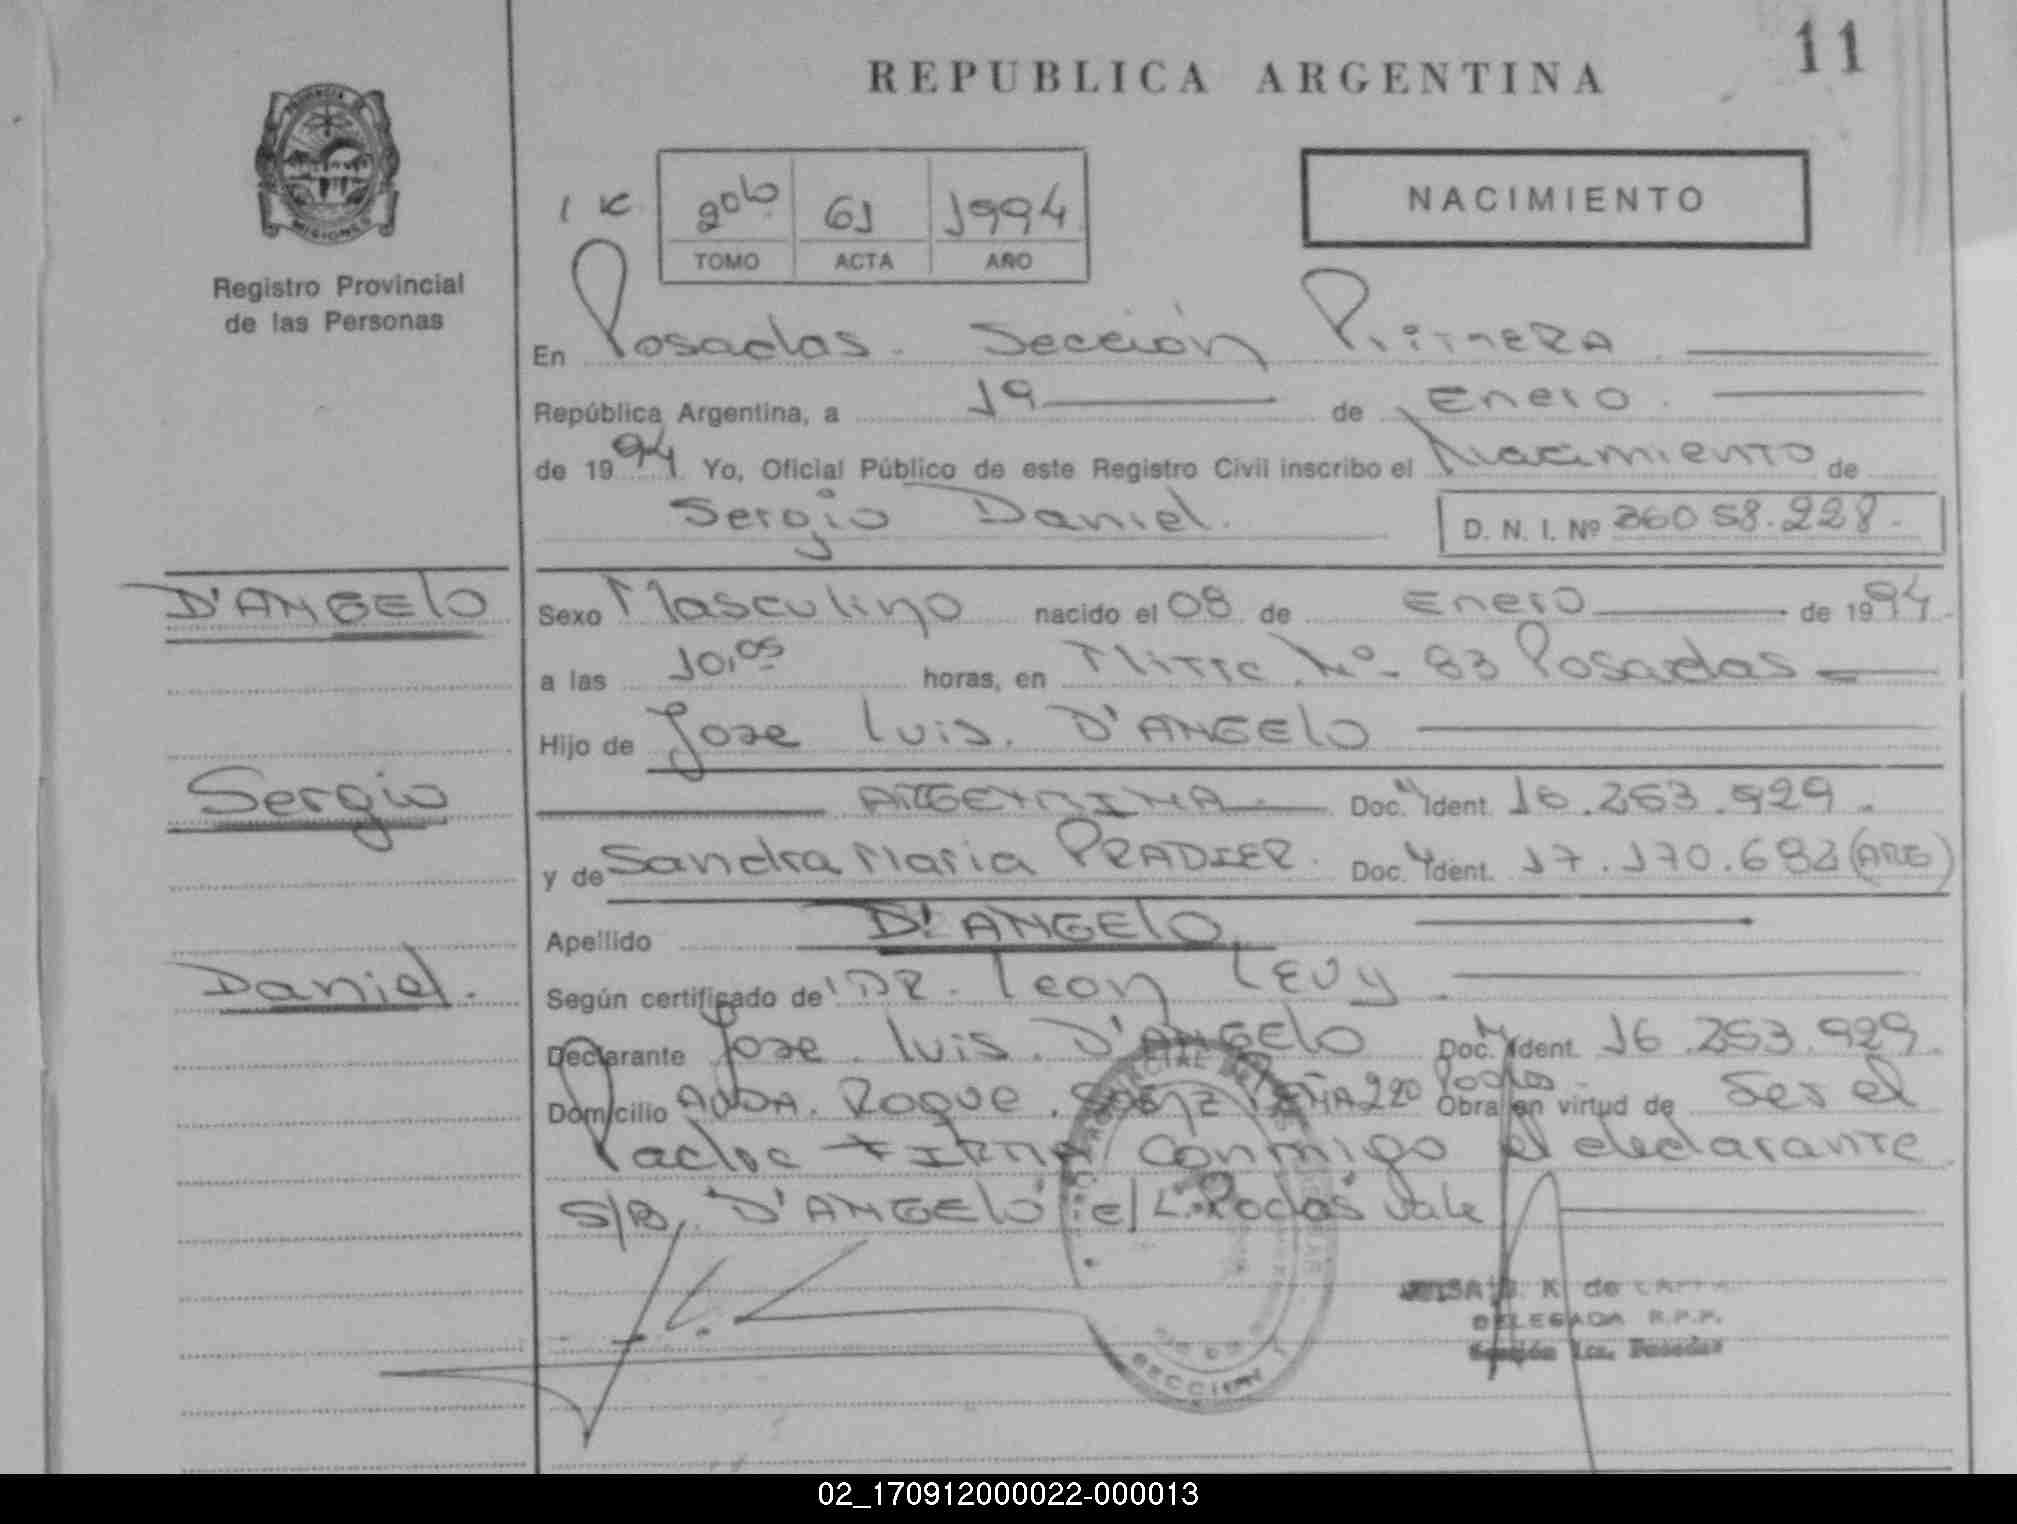 11
REPUBLICA ARGENTINA
PROVINCIA DE
MISIONES
Registro Provincial
de las Personas
NACIMIENTO
1 K
61 1994
TOMO ACTA AÑO
En Posadas. Sección Primera
República Argentina, a 19 de Enero.
de 1994 Yo, Oficial Público de este Registro Civil inscribo el Nacimiento de
Sergio Daniel. D. N. I. Nº 36058.228.
D'ANGELO
Sexo Masculino nacido el 08 de Enero de 1994
a las 10,05 horas, en Mitre Nº- 83 Posadas
Hijo de Jose Luis. D'ANGELO
Sergio
ARGENTINA Doc. Ident. 16.253.929.
y de Sandra Maria PRADIER. Doc. Ident. 17.170.682 (ARG)
Apellido D'ANGELO
Daniel.
Según certificado de DR. Leon Levy
Declarante Jose Luis. D'ANGELO Doc. Ident. 16.253.929.
Domicilio AVDA. Roque Saenz PEÑA 220 Podas Obra en virtud de Ser el
Padre FIRMA conmigo el declarante
S/B. "D'ANGELO" e/L "Podas" Vale
K de
DELEGADA R.P.P.
Sección 1ra. Posadas
SECCION 1
02_170912000022-000013